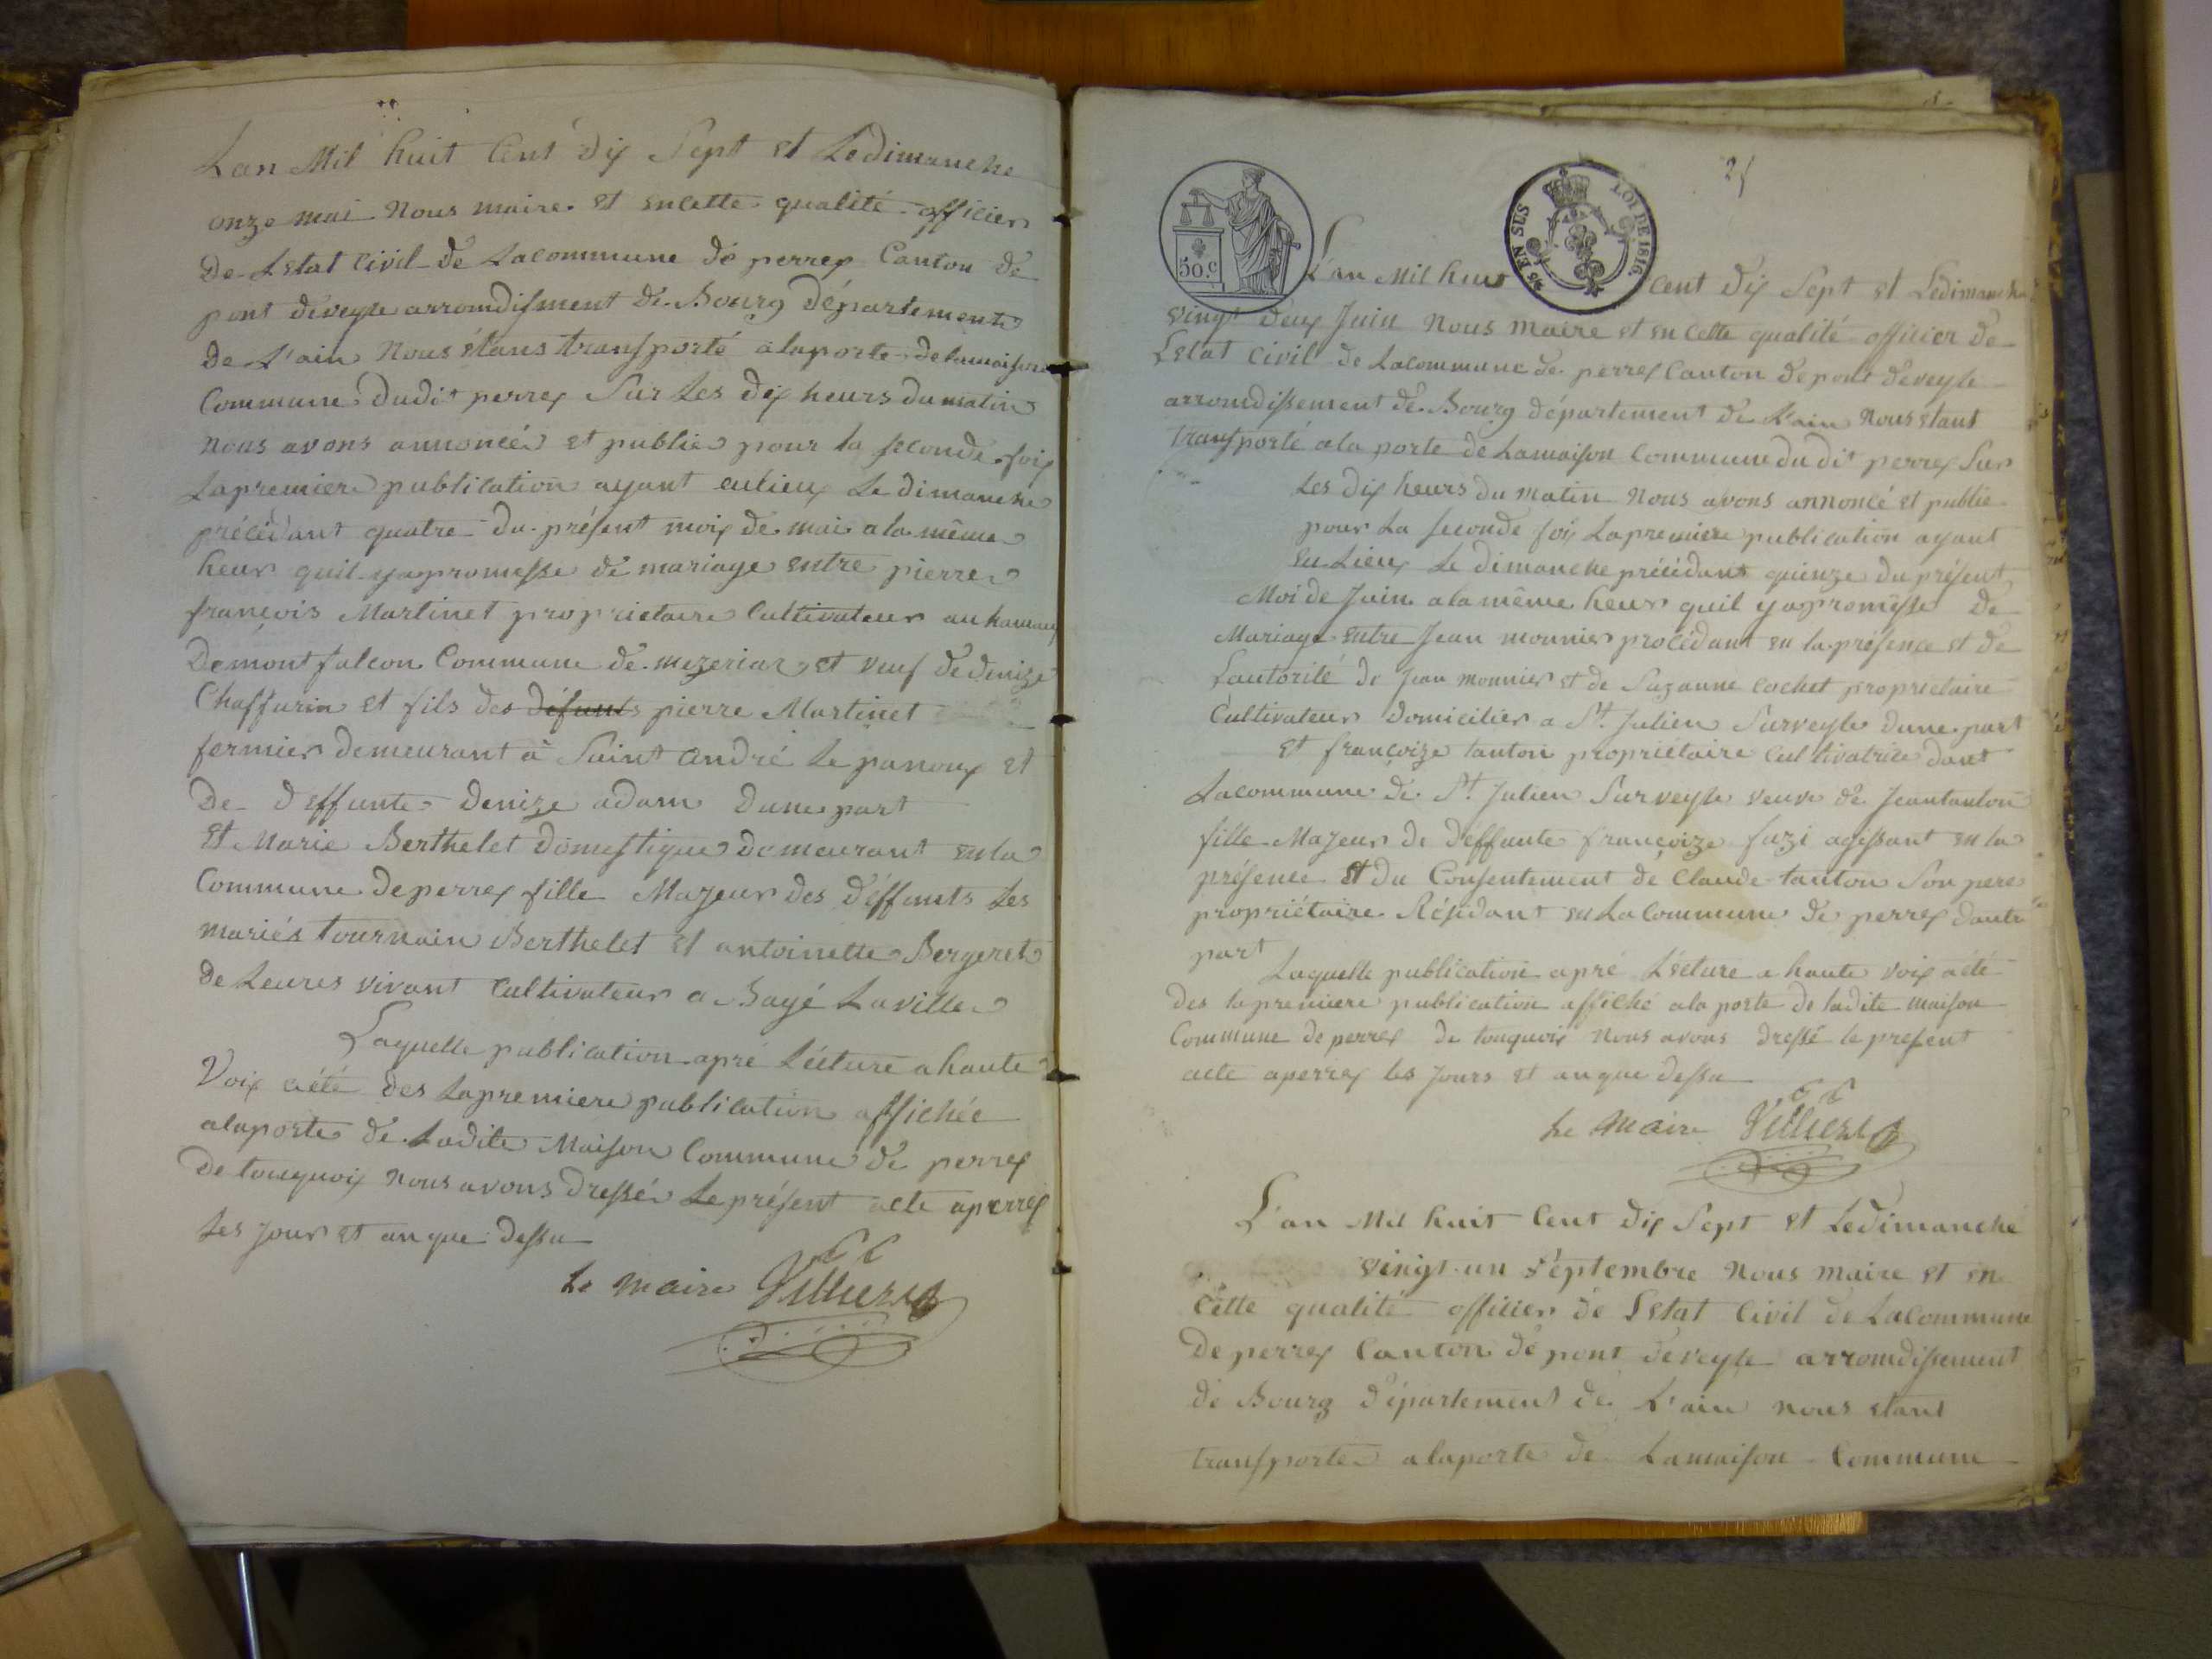 Lan Mil huit Cent dix Sept et Ledimanche
onze mai Nous maire et encette qualité officier
De Lstat Civil de Lacommune de perrex Canton de
pont deveyle arromdisment de Bourg département
de L'ain Nous étans transporté alaporte delamaison
Commune Dudit perrex Sur Les dix heurs du matin
Nous avons annoncée et publie pour la seconde fois
Lapremiere publication ayant eulieux Le dimanche
précédant quatre du présent moix de mai a la même
heur quil yapromesse de mariage entre pierre
françois Martinet proprietaire Cultivateur au hamau
Demontfalcon Commune de mezeriar et veuf de denize
Chaffurin et fils des défunts pierre Martinet
fermier demeurant à Saint andré Le panoux et
De deffunte Denize adam dune part
Et Marie Berthelet domestique demeurant enla
Commune deperrex fille Majeur des deffunts Les
mariés tournain Berthelet et antoinette Bergeret
de Leures vivant Cultivateur a Bagé Laville
Laquelle publication apré Lécture ahaute
Voix aété des Lapremiere publication affichée
alaporte de Ladite Maison Commune de perrex
De touquoix nous avons dressée Le présent acte aperrex
Les jour et anque dessu
Le maire Villiers
25
50.c
25 EN SUS LOI DE 1816.
L'an Mil huit Cent dix Sept et Ledimanche
vingt deux Juin Nous maire et en Cette qualité officier de
Lstat Civil de Lacommune de perrex Canton de pont deveyle
arromdissement de Bourg département de L'ain Nous étant
transporté ala porte de Lamaison Commune du dit perrex Sur
Les dix heurs du matin Nous avons annoncé et publie
pour La seconde foix Lapremiere publication ayant
eu Lieux Le dimanche précédant quienze du présent
Moi de Juin ala même heur quil yapromesse de
Mariage entre Jean monnier procédant en la présence et de
Lautorité de Jean monnier et de Suzanne cochet proprietaire
Cultivateur domicilier a St. Julien Surveyle dune part
et françoize tanton propriétaire Cultivatrice dant
Lacommune de St. Julien Surveyle veuve de Jeantanton
fille Majeur de deffunte françoize fuzi agissant en la
présence et du Consentement de Claude tanton Son pere
propriétaire Résidant en La Commune de perrex dautre
part
Laquelle publication apré Lécture a haute voix aété
des la premiere publication affiché ala porte de ladite maison
Commune de perrex de touquoix Nous avons dressé le present
acte aperrex les Jours et anque dessu
Le Maire Villiers
L'an Mil huit Cent dix Sept et Ledimanche
vingt un séptembre Nous maire et en
Cette qualité officier de Lstat Civil de Lacommune
De perrex Canton de pont deveyle arromdissement
de Bourg département de L'ain nous étant
transporter alaporte de Lamaison Commune